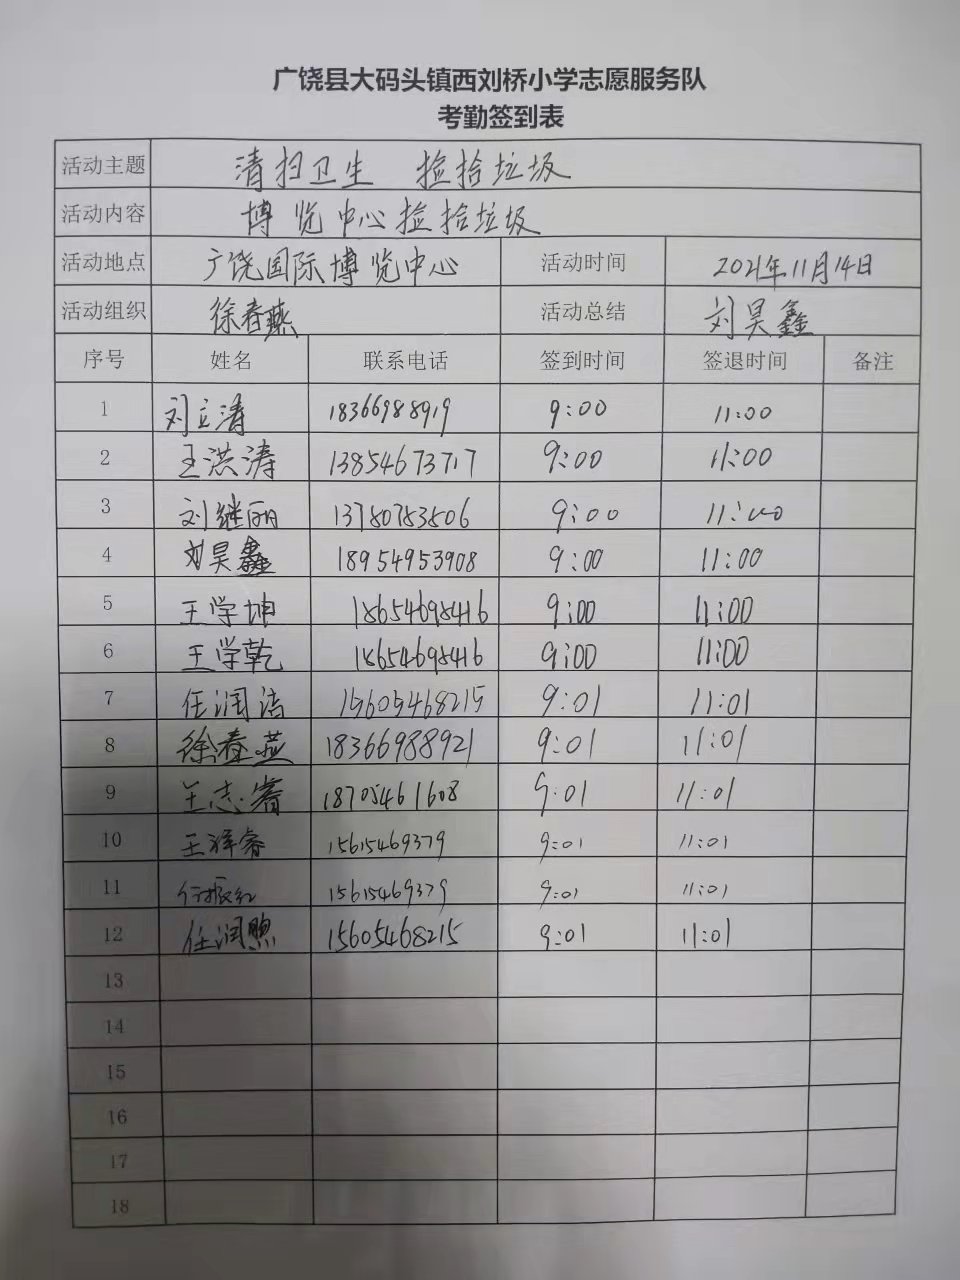 广饶县大码头镇西刘桥小学志愿服务队
考勤签到表
活动主题 清扫卫生 捡拾垃圾
活动内容 博览中心捡拾垃圾
活动地点 广饶国际博览中心 活动时间 2021年11月14日
活动组织 徐春燕 活动总结 刘昊鑫
序号 姓名 联系电话 签到时间 签退时间 备注
1 刘立涛 18366988919 9:00 11:00
2 王洪涛 13854673717 9:00 11:00
3 刘继丽 13780783806 9:00 11:00
4 刘昊鑫 18954953908 9:00 11:00
5 王学坤 18654698416 9:00 11:00
6 王学乾 18654698416 9:00 11:00
7 任润洁 15605468215 9:01 11:01
8 徐春燕 18366988921 9:01 11:01
9 王志睿 18705461608 9:01 11:01
10 王祥睿 15615469379 9:01 11:01
11 15615469379 9:01 11:01
12 任润煦 15605468215 9:01 11:01
13
14
15
16
17
18